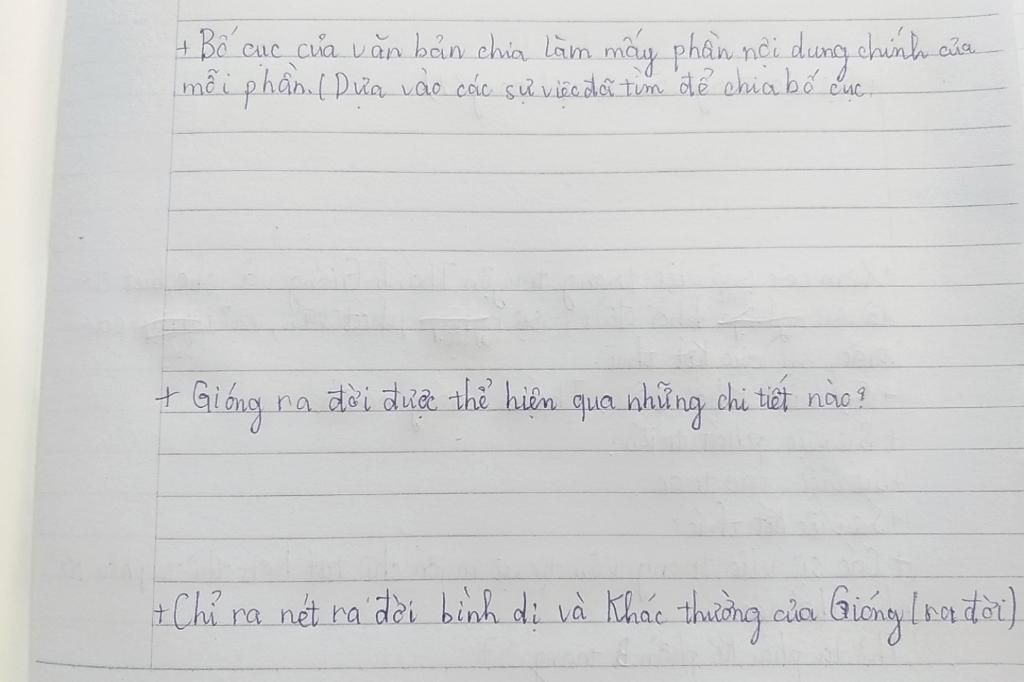 + Bố cục của văn bản chia làm mấy phần nội dung chính của
mỗi phần. (Dựa vào các sự việc đã tìm để chia bố cục.
+ Gióng ra đời được thể hiện qua những chi tiết nào?
+ Chỉ ra nét ra đời bình dị và Khác thường của Gióng (ra đời)